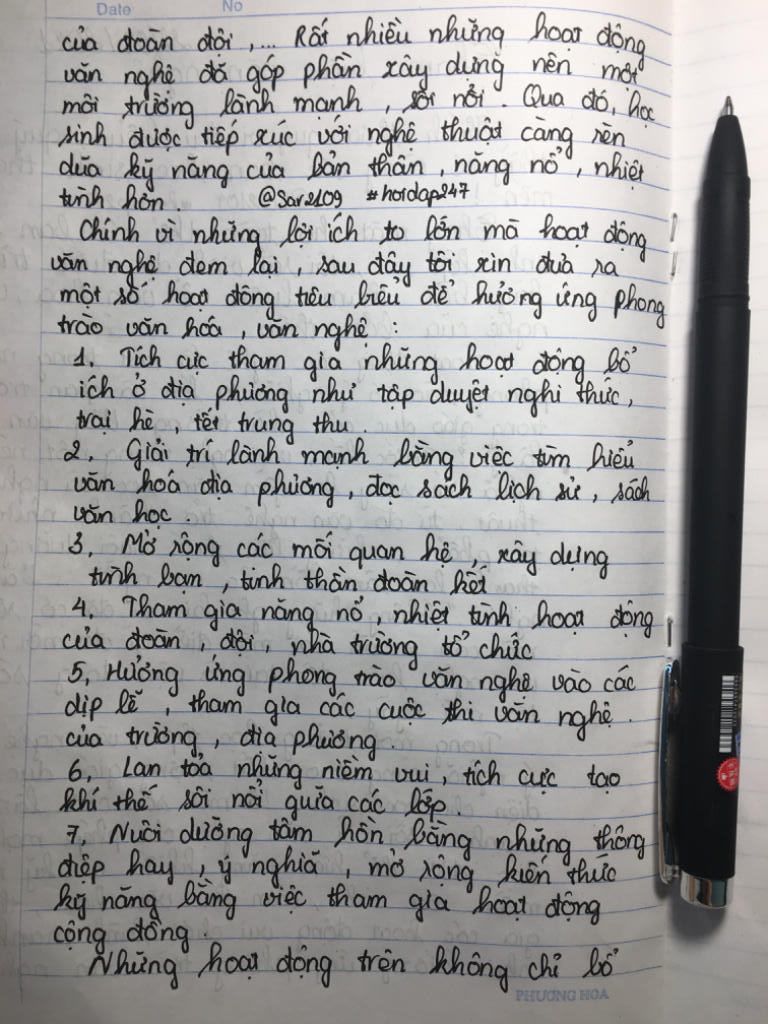 Date No
của đoàn đội ,... Rất nhiều những hoạt động
văn nghệ đã góp phần xây dựng nên một
môi trường lành mạnh , sôi nổi . Qua đó, học
sinh được tiếp xúc với nghệ thuật càng rèn
dũa kỹ năng của bản thân , năng nổ , nhiệt
tình hơn @Sar2109 #hoidap247
Chính vì những lợi ích to lớn mà hoạt động
văn nghệ đem lại , sau đây tôi xin đưa ra
một số hoạt động tiêu biểu để hưởng ứng phong
trào văn hóa , văn nghệ :
1, Tích cực tham gia những hoạt động bổ
ích ở địa phương như tập duyệt nghi thức ,
trại hè , tết trung thu .
2, Giải trí lành mạnh bằng việc tìm hiểu
văn hoá địa phương , đọc sách lịch sử , sách
văn học .
3, Mở rộng các mối quan hệ , xây dựng
tình bạn , tinh thần đoàn kết
4, Tham gia năng nổ , nhiệt tình hoạt động
của đoàn , đội , nhà trường tổ chức
5, Hưởng ứng phong trào văn nghệ vào các
dịp lễ , tham gia các cuộc thi văn nghệ .
của trường , địa phương
6, Lan tỏa những niềm vui , tích cực tạo
khí thế sôi nổi giữa các lớp .
7, Nuôi dưỡng tâm hồn bằng những thông
điệp hay , ý nghiã , mở rộng kiến thức
kỹ năng bằng việc tham gia hoạt động
cộng đồng .
Những hoạt động trên không chỉ bổ
PHƯƠNG HOA